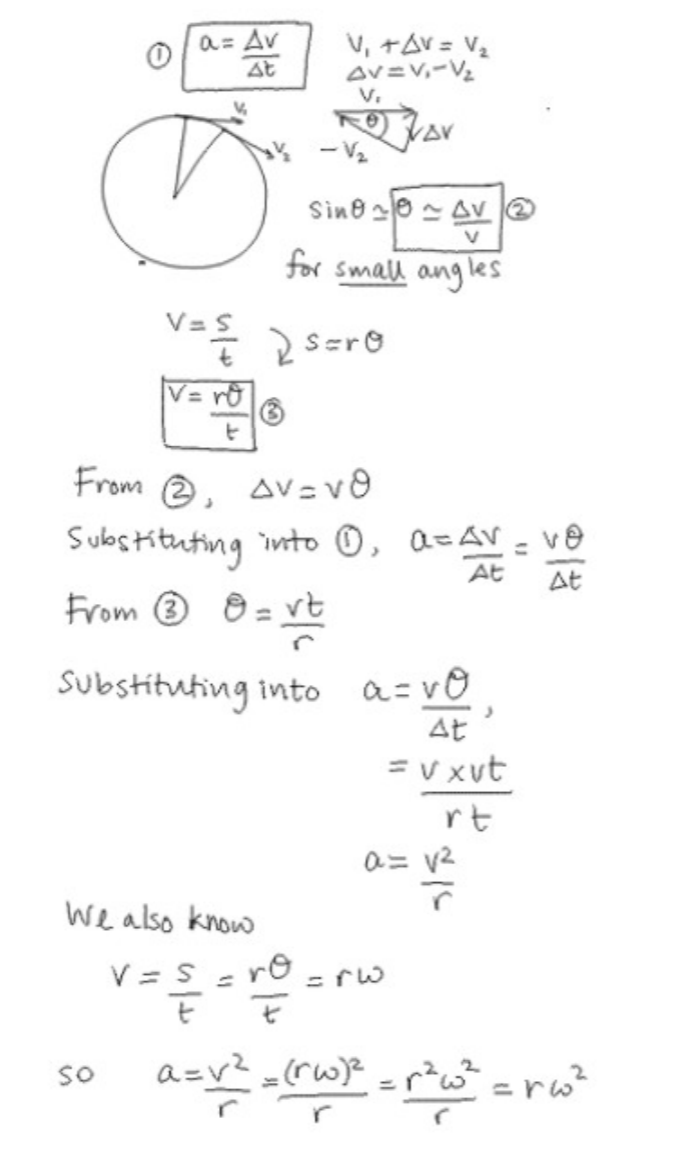 ① a = Δv/Δt
V₁ + Δv = V₂
Δv = V₁ - V₂
V₁
V₂
V₁
θ
Δv
-V₂
sinθ ≃ θ ≃ Δv/v ②
for small angles
V = s/t
s = rθ
V = rθ/t ③
From ②, Δv = vθ
Substituting into ①, a = Δv/Δt = vθ/Δt
From ③ θ = vt/r
Substituting into a = vθ/Δt,
= v x vt/rt
a = v²/r
We also know
V = s/t = rθ/t = rω
so a = v²/r = (rω)²/r = r²ω²/r = rω²